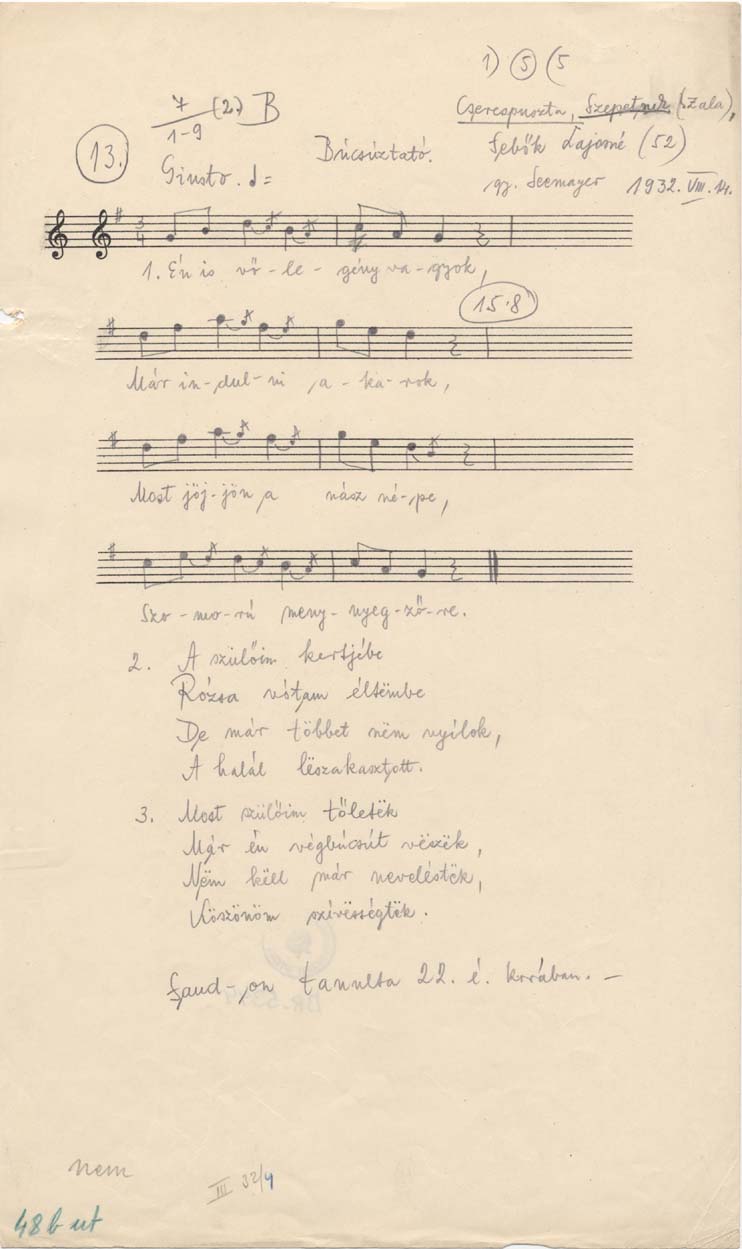 1) 5 (5
7 (2.) B
1-9
Cserespuszta, Szepetnek (Zala),
13.
Búcsúztató.
Sebők Lajosné (52)
Giusto.
gy. Seemayer 1932. VIII. 14.
3
4
1. Én is vő-le-gény va-gyok,
15.8
Már in-dul-ni a-ka-rok,
Most jöj-jön a nász né-pe,
Szo-mo-rú meny-nyeg-ző-re.
2. A szülőim kertjébe
Rózsa vótam éltëmbe
De már többet nëm nyílok,
A halál lëszakasztott.
3. Most szülőim tőletëk
Már én végbúcsút vëszëk,
Nëm këll már neveléstëk,
Köszönöm szívességtëk.
-on tanulta 22. é. korában. —
nem
III 32/4
48 b ut